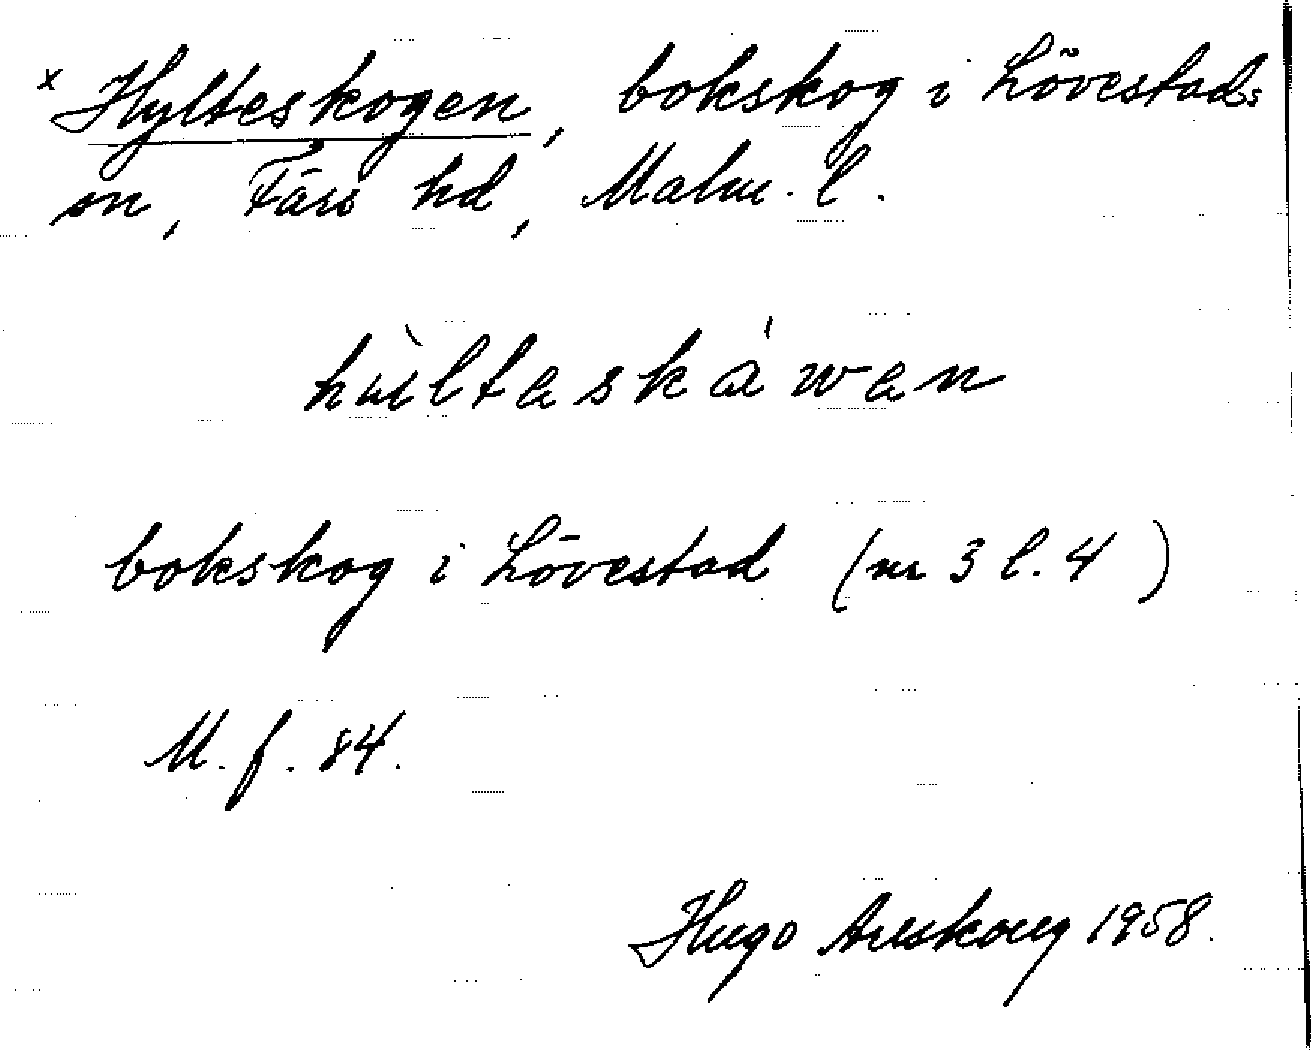 x Hylteskogen, bokskog i Lövestads
sn, Färs hd, Malm. l.
hùltaská'wan
bokskog i Lövestad (nr 3 l. 4)
M. f. 84.
Hugo Areskoug 1958.